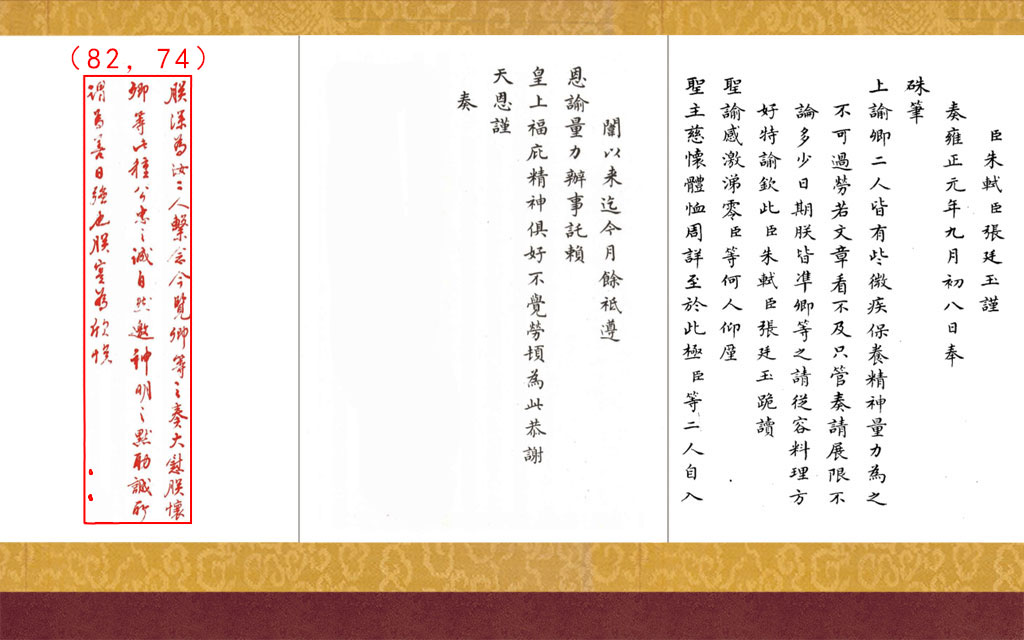 臣朱軾臣張廷玉謹
奏雍正元年九月初八日奉
硃筆
上諭卿二人皆有些微疾保養精神量力為之
不可過勞若文章看不及只管奏請展限不
論多少日期朕皆凖卿等之請從容料理方
好特諭欽此臣朱軾臣張廷玉跪讀
聖諭感激涕零臣等何人仰廑
聖主慈懷體恤周詳至於此極臣等二人自入
闈以来迄今月餘祗遵
恩諭量力辦事託賴
皇上福庇精神俱好不覺勞頓為此恭謝
天恩謹
奏
(82, 74)
朕深為汝二人繫念今覽卿等之奏大慰朕懷
卿等此種公忠之誠自然邀神明之默助誠所
謂為善日強也朕寔為欣悅